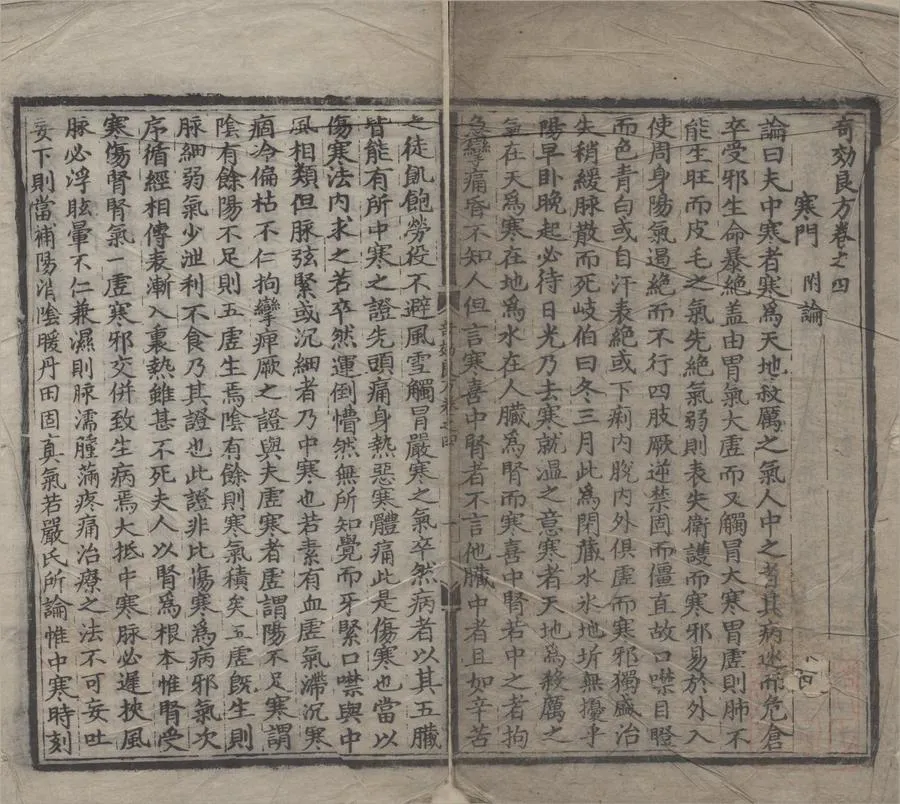 奇効良方卷之四
寒門 附論
論曰夫中寒者寒爲天地殺厲之氣人中之者其病迷而危倉
卒受邪生命暴絶盖由胃氣大虛而又觸冒大寒胃虛則肺不
能生旺而皮毛之氣先絶氣弱則表失衛護而寒邪易於外入
使周身陽氣遏絶而不行四肢厥逆禁固而僵直故口噤目瞪
而色青白或自汗表絶或下痢内脫内外俱虛而寒邪獨盛治
失稍緩脉散而死岐伯曰冬三月此爲閉藏水氷地坼無擾乎
陽早卧晚起必待日光乃去寒就温之意寒者天地爲殺厲之
氣在天爲寒在地爲水在人臟爲腎而寒喜中腎若中之者拘
急攣痛昏不知人但言寒喜中腎者不言他臟中者且如辛苦
奇効良方卷之四
之徒飢飽勞役不避風雪觸冒嚴寒之氣卒然病者以其五臟
皆能有所中寒之證先頭痛身熱惡寒體痛此是傷寒也當以
傷寒法内求之若卒然運倒懵然無所知覺而牙緊口噤與中
風相類但脉弦緊或沉細者乃中寒也若素有血虛氣滯沉寒
痼冷偏枯不仁拘攣痺厥之證與夫虛寒者虛謂陽不足寒謂
陰有餘陽不足則五虛生焉陰有餘則寒氣積矣五虛旣生則
脉細弱氣少泄利不食乃其證也此證非比傷寒爲病邪氣次
序循經相傳表漸入裏熱雖甚不死夫人以腎爲根本惟腎受
寒傷腎腎氣一虛寒邪交併致生病焉大抵中寒脉必遲挾風
脉必浮眩暈不仁兼濕則脉濡腫滿疼痛治療之法不可妄吐
妄下則當補陽消陰暖丹田固真氣若嚴氏所論惟中寒時刻